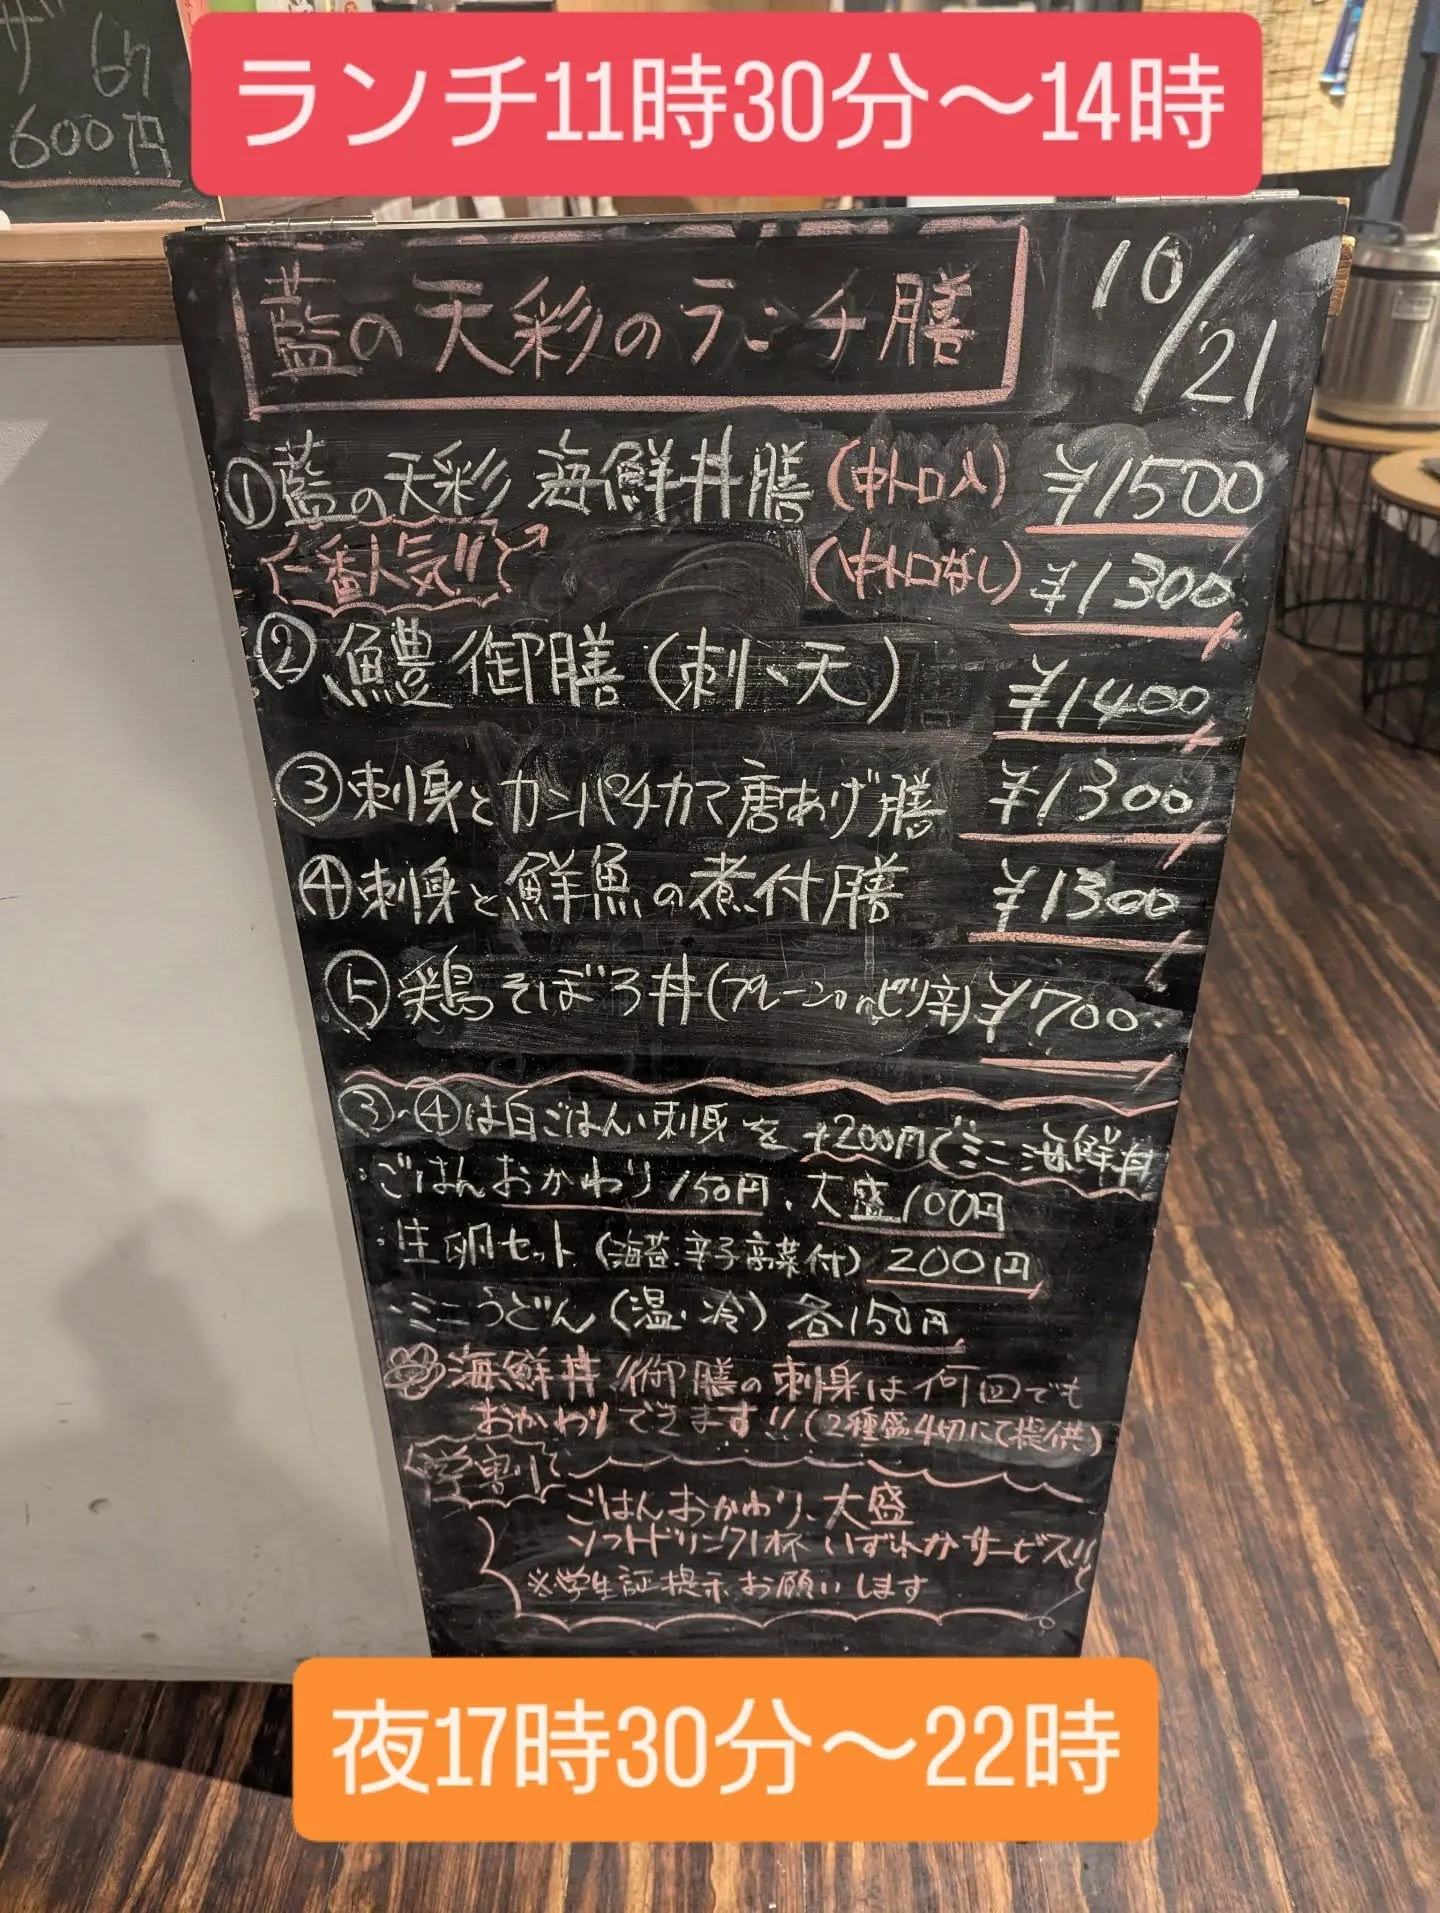 600円
ランチ11時30分～14時
藍の天彩のランチ膳
10/21
①藍の天彩 海鮮丼膳(中トロ入) ¥1500
一番人気!! (中トロなし) ¥1300
②鱧御膳(刺、天) ¥1400
③刺身とカンパチカマ唐あげ膳 ¥1300
④刺身と鮮魚の煮付膳 ¥1300
⑤鶏そぼろ丼(プレーンorピリ辛) ¥700
③~④は白ごはん、刺身を+200円でミニ海鮮丼
・ごはんおかわり150円、大盛100円
・生卵セット(海苔、辛子高菜付) 200円
・ミニうどん(温・冷) 各150円
海鮮丼、御膳の刺身は何回でも
おかわりできます!!(2種盛4切にて提供)
学割
ごはんおかわり、大盛
ソフトドリンク1杯 いずれかサービス!!
※学生証提示お願いします
夜17時30分～22時